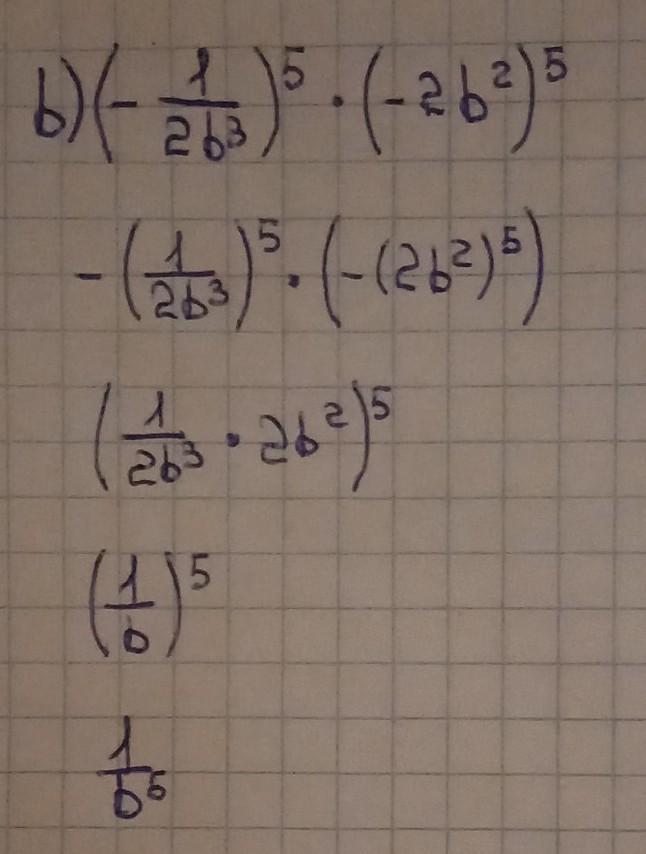 b) (-1/2b³)⁵ · (-2b²)⁵
-(1/2b³)⁵ · (-(2b²)⁵)
(1/2b³ · 2b²)⁵
(1/b)⁵
1/b⁵